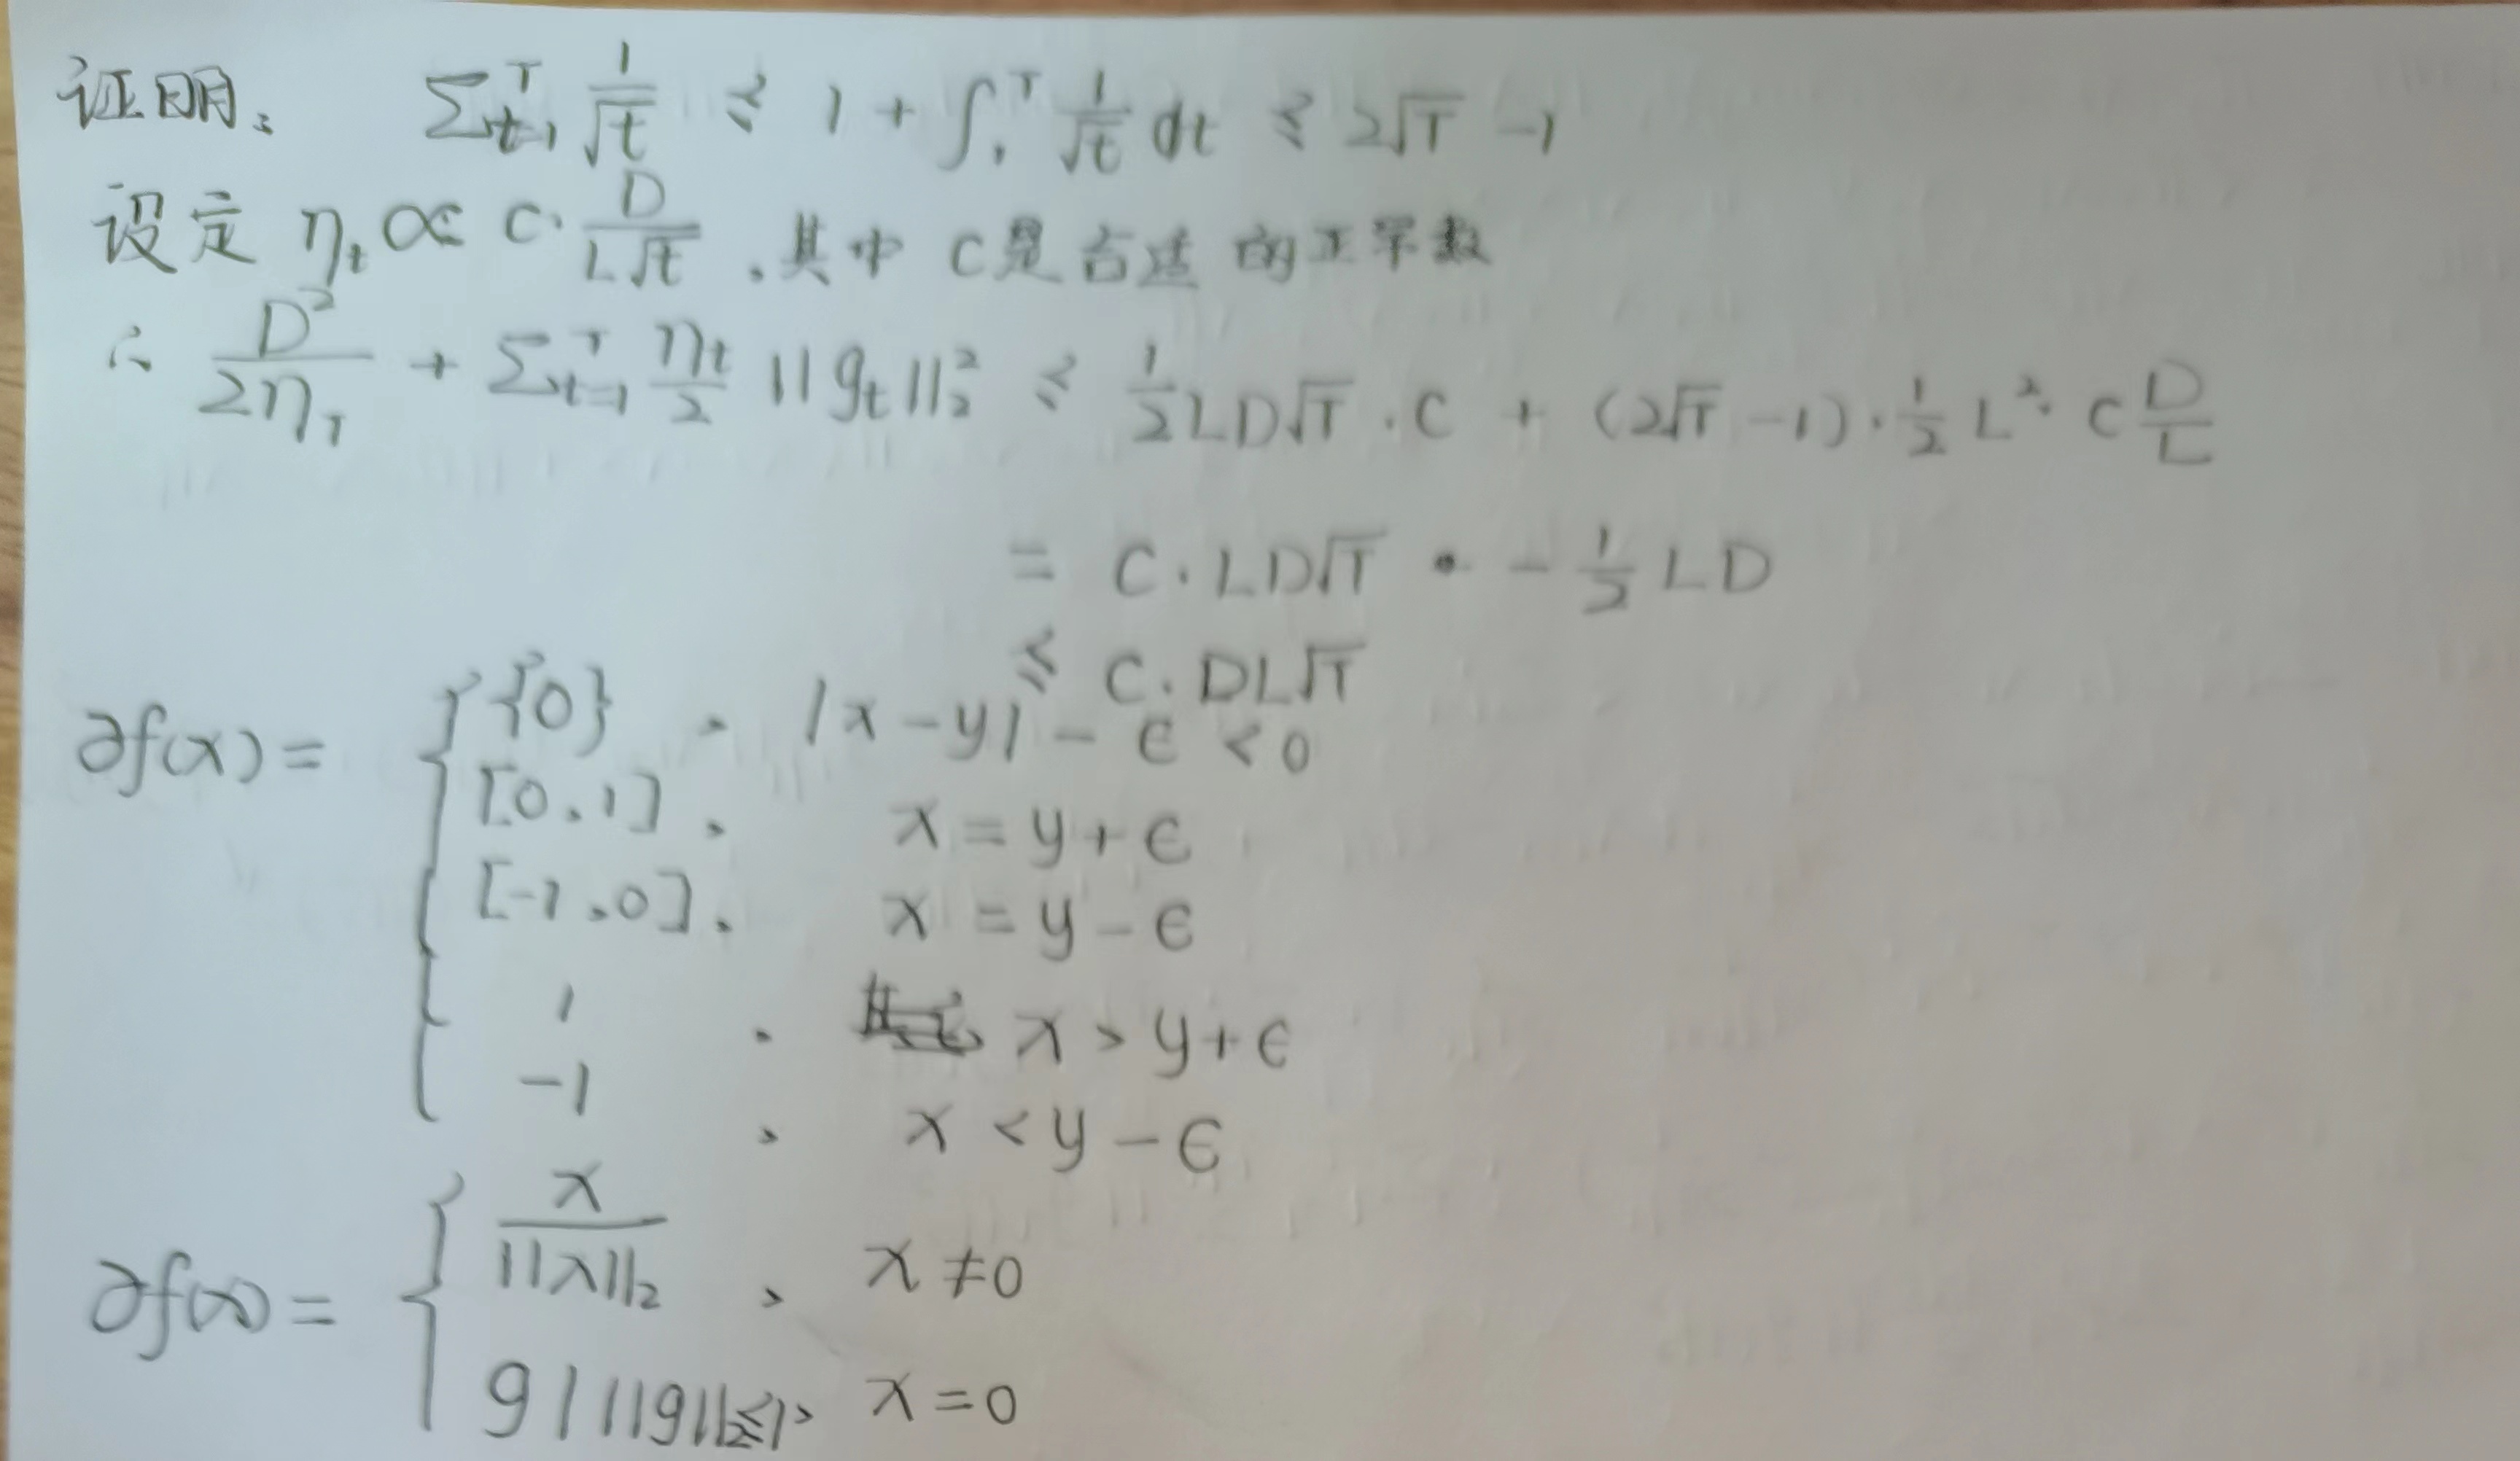 证明: ∑_{t=1}^T 1/√t ≤ 1 + ∫_1^T 1/√t dt ≤ 2√T - 1
设定 η_t ∝ C · D/(L√t) , 其中 C是合适的正常数
∴ D²/(2η_T) + ∑_{t=1}^T η_t/2 ||g_t||_2^2 ≤ 1/2 LD√T · C + (2√T - 1) · 1/2 L² · C D/L
= C · LD√T - 1/2 LD
≤ C · DL√T
∂f(x) = { {0} , |x - y| - ϵ < 0
[0, 1] , x = y + ϵ
[-1, 0] , x = y - ϵ
1 , x > y + ϵ
-1 , x < y - ϵ
∂f(x) = { x/||x||_2 , x ≠ 0
g | ||g||_2 ≤ 1, x = 0